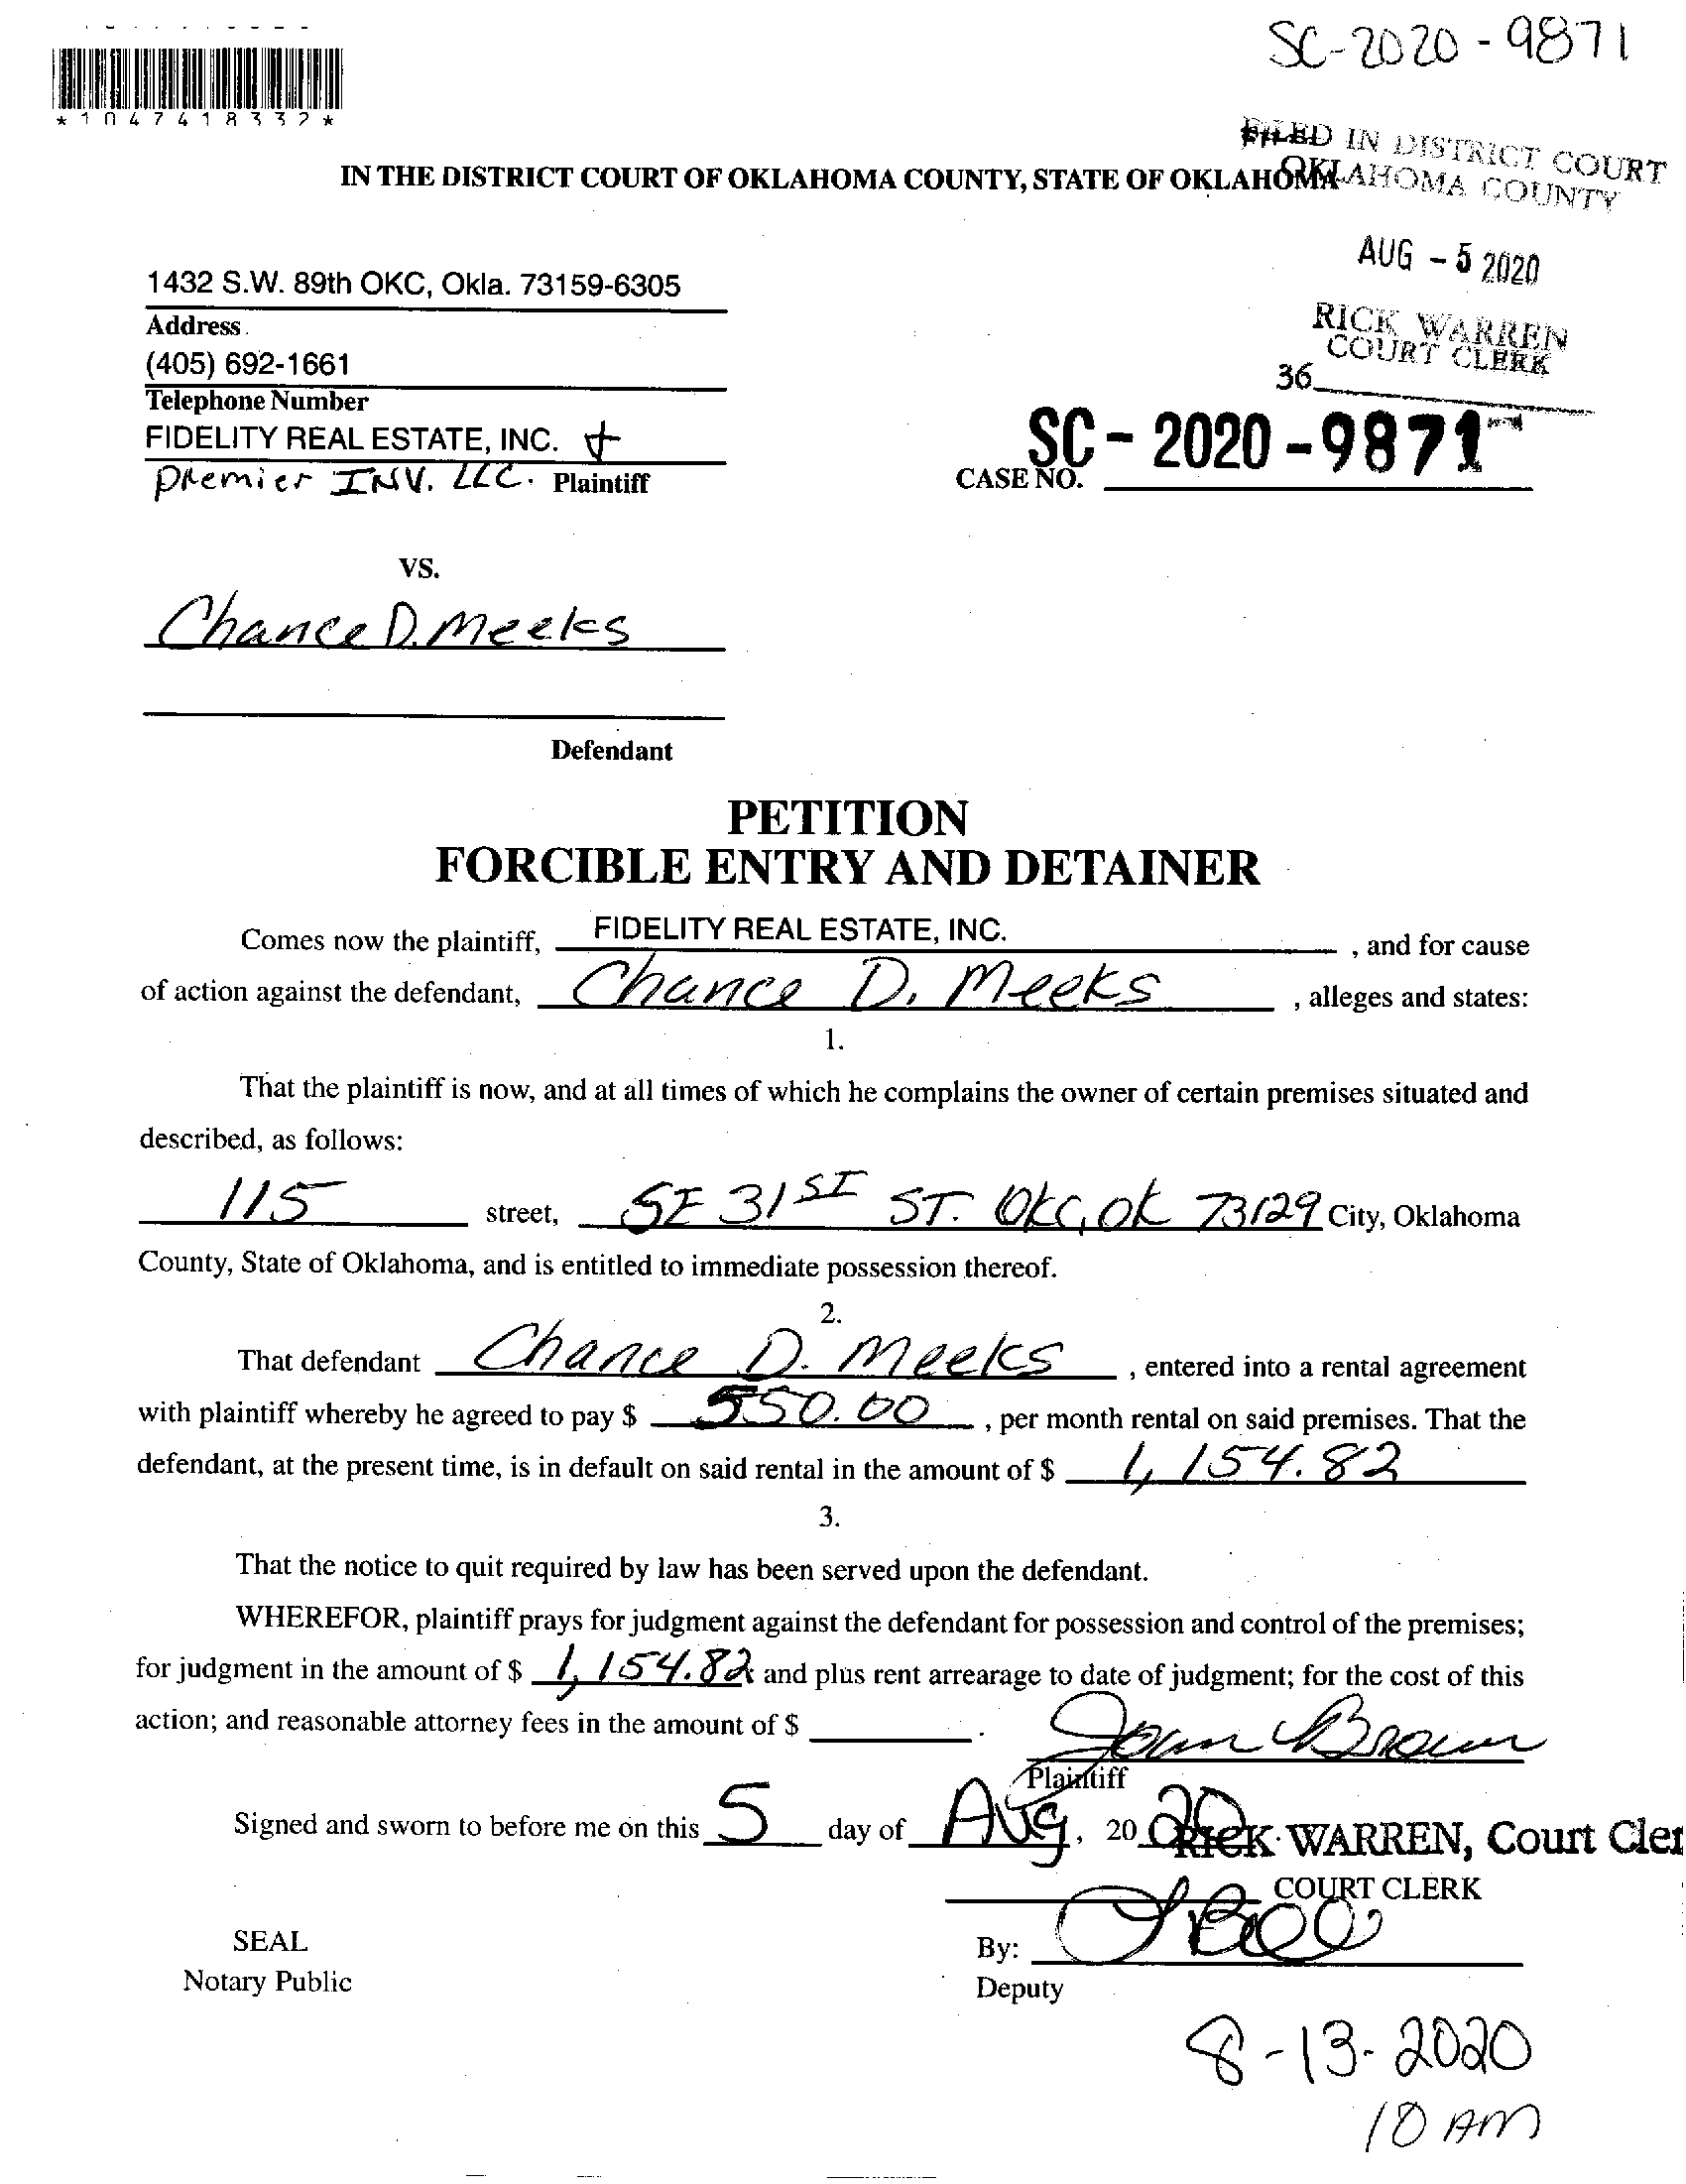 SC-2020-9871
*1047418332*
FILED IN DISTRICT COURT
OKLAHOMA COUNTY
IN THE DISTRICT COURT OF OKLAHOMA COUNTY, STATE OF OKLAHOMA
AUG - 5 2020
1432 S.W. 89th OKC, Okla. 73159-6305
Address
RICK WARREN
COURT CLERK
(405) 692-1661
36
Telephone Number
FIDELITY REAL ESTATE, INC. +
Premier INV. LLC. Plaintiff
CASE NO. SC - 2020 - 9871
VS.
Chance D. Meeks
Defendant
PETITION
FORCIBLE ENTRY AND DETAINER
Comes now the plaintiff, FIDELITY REAL ESTATE, INC. , and for cause
of action against the defendant, Chance D. Meeks , alleges and states:
1.
That the plaintiff is now, and at all times of which he complains the owner of certain premises situated and
described, as follows:
115 street, SE 31ST ST. OKC, OK 73129 City, Oklahoma
County, State of Oklahoma, and is entitled to immediate possession thereof.
2.
That defendant Chance D. Meeks , entered into a rental agreement
with plaintiff whereby he agreed to pay $ 550.00 , per month rental on said premises. That the
defendant, at the present time, is in default on said rental in the amount of $ 1,154.82
3.
That the notice to quit required by law has been served upon the defendant.
WHEREFOR, plaintiff prays for judgment against the defendant for possession and control of the premises;
for judgment in the amount of $ 1,154.82 and plus rent arrearage to date of judgment; for the cost of this
action; and reasonable attorney fees in the amount of $ .
Joan Brown
Plaintiff
Signed and sworn to before me on this 5 day of Aug, 20 20
RICK WARREN, Court Cler
COURT CLERK
SEAL
By:
Notary Public
Deputy
8-13-2020
10 AM